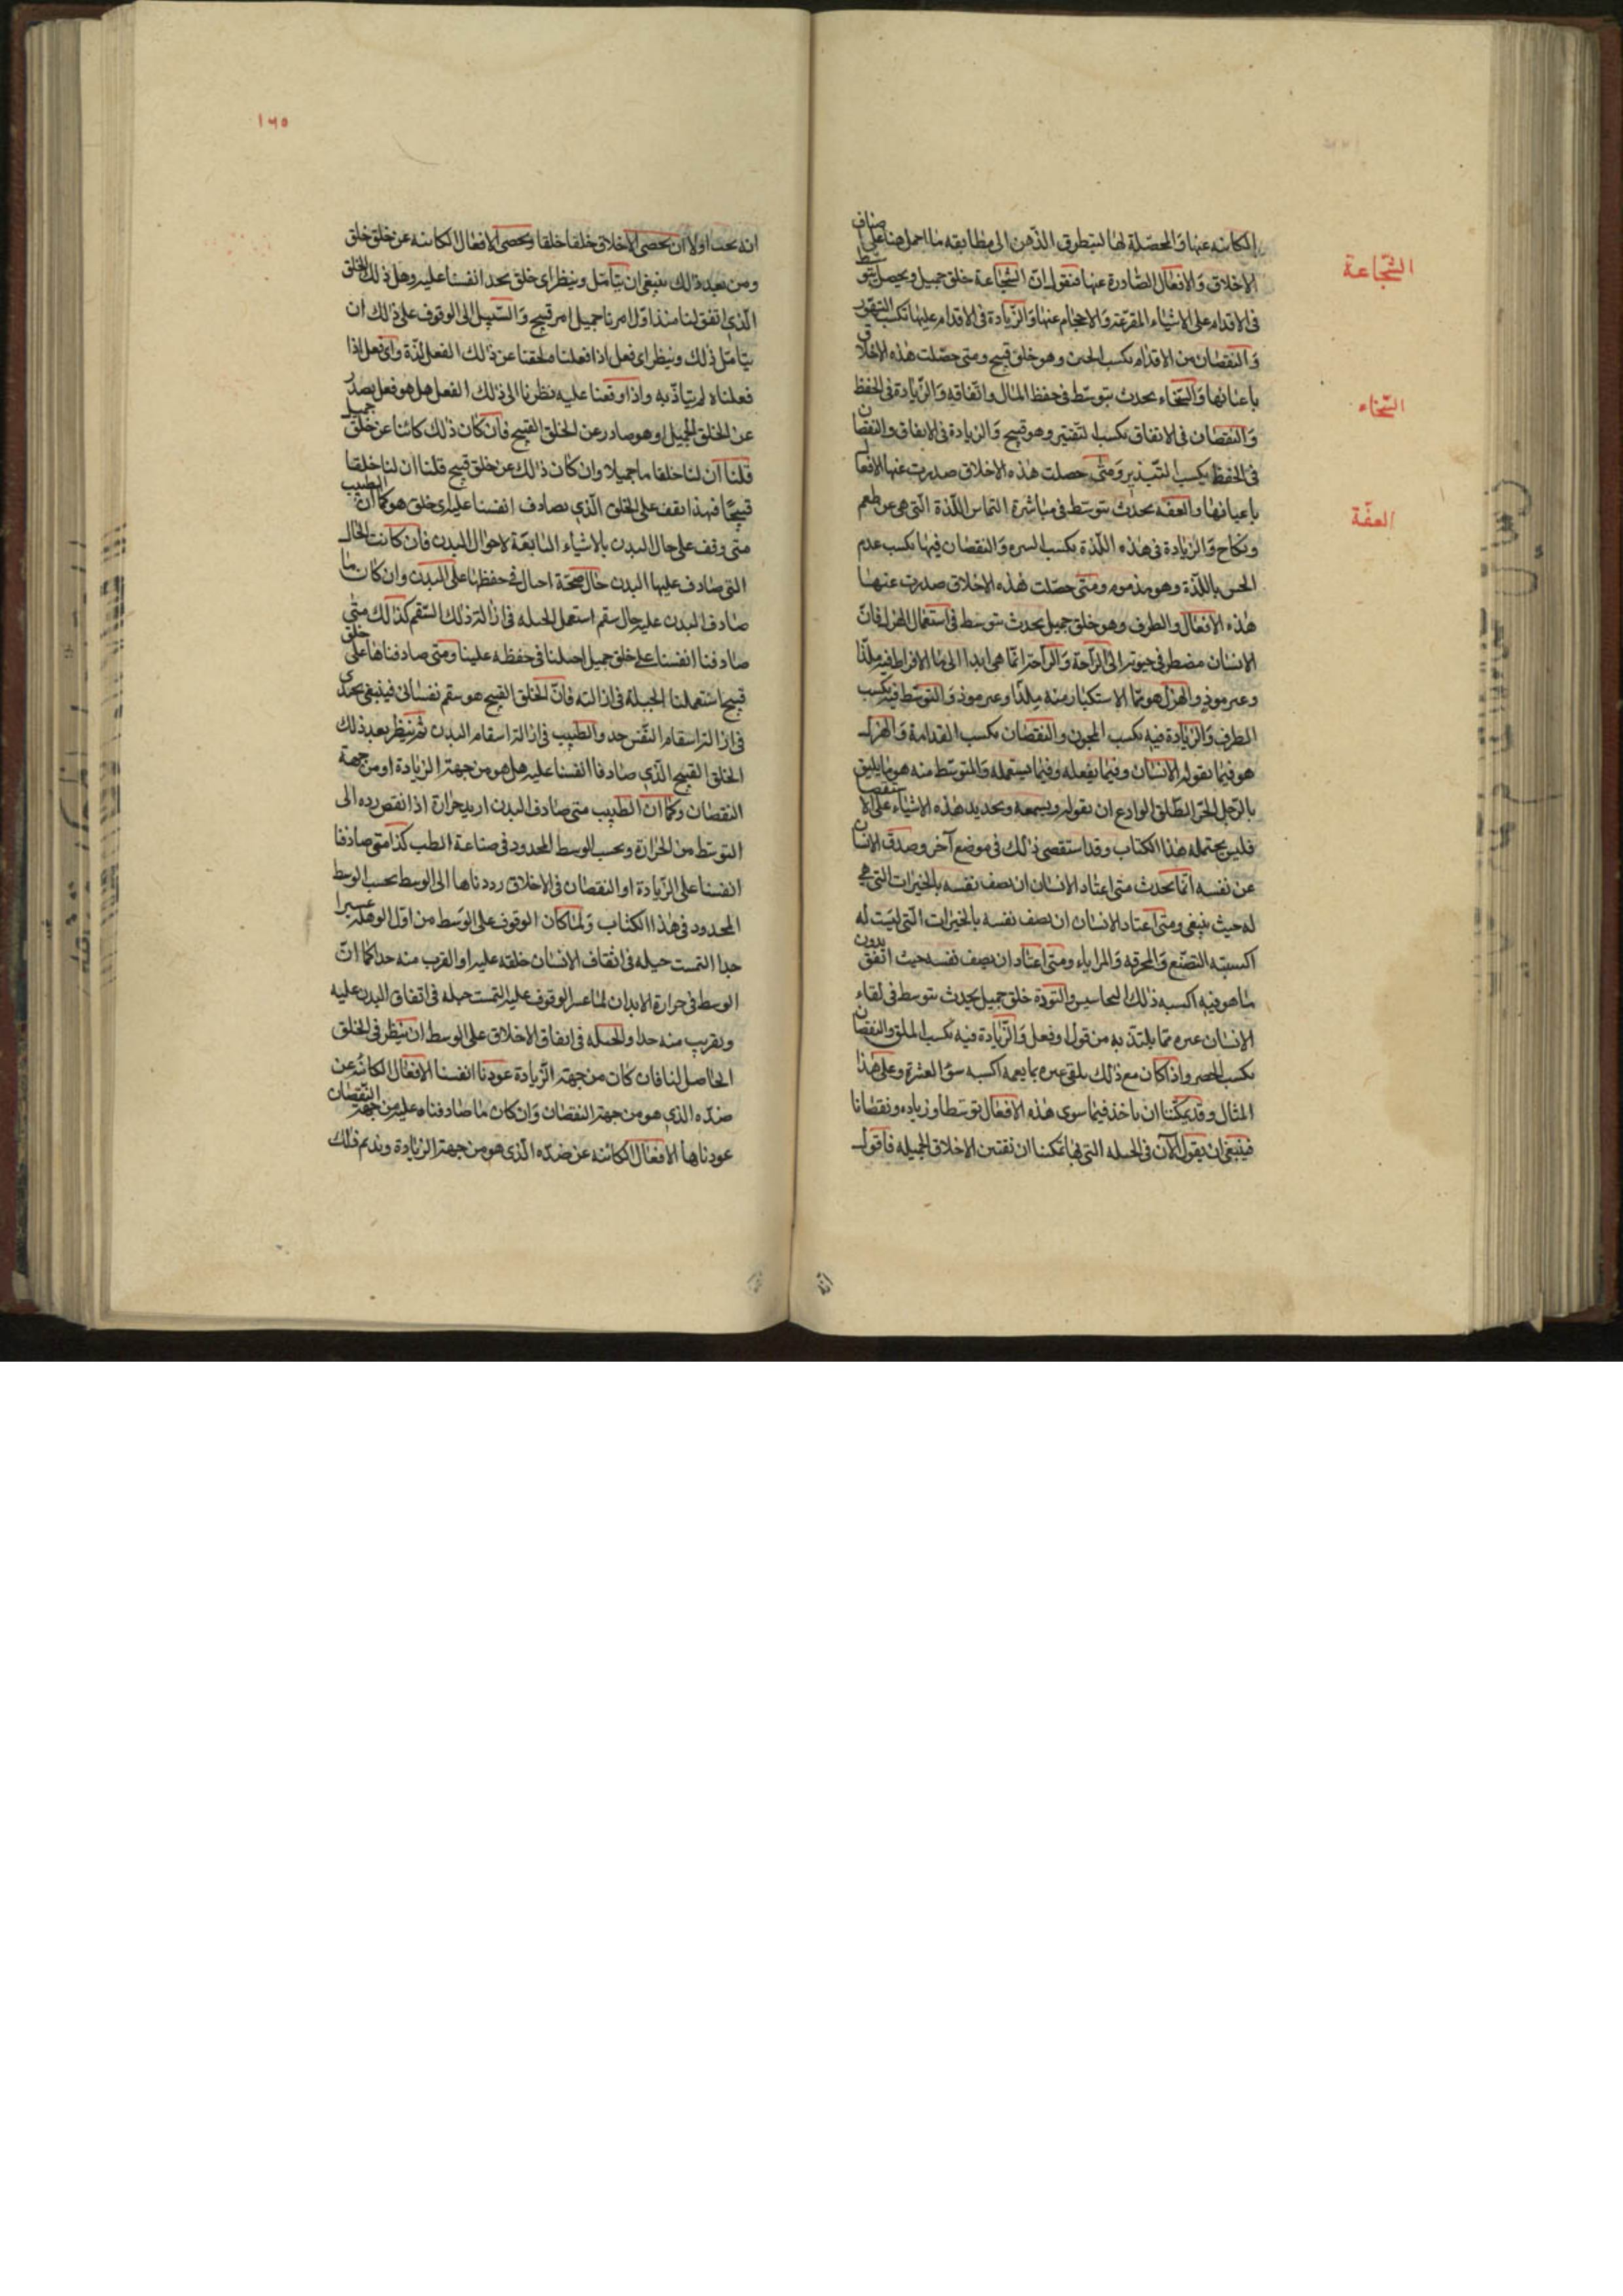 الكائنه عنها والمحصّلة لها ليتطرق الذّهن الى مطابقه ما اجمل هنا على اصناف
الشّجاعة
الاخلاق والافعال الصّادرة عنها فنقول انّ الشّجاعة خلق جميل ويحصل بتوسّط
فى الاقدام على الاشياء المفزعة والاحجام عنها والزّيادة فى الاقدام عليها تكسب التهوّر
والنقصان من الاقدام يكسب الجبن وهو خلق قبيح ومتى حصّلت هذه الاخلاق
السّخاء
باعيانها والسّخاء يحدث بتوسّط فى حفظ المال وانفاقه والزّيادة فى الحفظ
والنقصان فى الانفاق يكسب التقتير وهو قبيح والزيادة فى الانفاق والنقصان
فى الحفظ يكسب التّبذير ومتى حصلت هذه الاخلاق صدرت عنها الافعال
العفّة
باعيانها والعفه يحدث بتوسّط فى مباشرة التماس اللّذة الّتى هى عن طعم
ونكاح والزيادة فى هذه اللّذة يكسب الشره والنقصان فيها يكسب عدم
الحس باللّذة وهو مذموم ومتى حصّلت هذه الاخلاق صدرت عنها
هذه الافعال والظرف وهو خلق جميل يحدث بتوسّط فى استعمال الهزل فانّ
الانسان مضطر فى حيوته الى الرّاحة والرّاحة انّما هى ابدا الى ما الافراط فيه ملذّا
وغير موذ والهزل هو ممّا الاستكثار منه ملذّا وغير موذ والتوسّط فيه يكسب
الظرف والزيادة فيه يكسب المجون والنقصان يكسب الفدامة والهزل
هو فيما يقوله الانسان وفيما يفعله وفيما يستمله والمتوسّط منه هو ما يليق
بالرّجل الحرّ الطّلق الوادع ان يقوله ويسمعه وتحديد هذه الاشياء على الاستقصا
فليس يحتمله هذا الكتاب وقد استقصى ذلك فى موضع آخر وصدق الانسان
عن نفسه انّما يحدث متى اعتاد الانسان ان يصف نفسه بالخيرات التى هى
له حيث ينبغى ومتى اعتاد الانسان ان يصف نفسه بالخيرات الّتى ليست له
اكسبته التصنّع والمخرقه والمراياء ومتى اعتاد ان يصف نفسه حيث اتفق بدون
ما هو فيه اكسبه ذلك التحاسيس والتودّد خلق جميل يحدث بتوسّط فى لقاء
الانسان غيره ممّا يلتذّ به من قول او فعل والزّيادة فيه يكسب الملق والنقصان
يكسب الحصر واذا كان مع ذلك يلقى غيره بما يغمه اكسبه سؤ العشرة وعلى هذا
المثال وقد يمكننا ان ناخذ فيما سوى هذه الافعال توسّطا وزياده ونقصانا
فينبغى ان نقول الآن فى الحيله التى بها تمكننا ان نقتنى الاخلاق الجميله فاقول
١٦٥
انه يجب اولا ان نحصى الاخلاق خلقا خلقا ونحصى الافعال الكائنه عن خلق خلق
ومن بعد ذلك ينبغى ان نتامّل وننظر اى خلق نجد انفسنا عليه وهل ذلك الخلق
الّذى اتفق لنا منذ اوّل امرنا جميل ام قبيح والسّبيل الى الوقوف على ذلك ان
نتامّل ذلك وننظر اى فعل اذا فعلنا ملحقنا عن ذلك الفعل لذّة واى فعل اذا
فعلناه لم نتاذّ به واذا وقعنا عليه نظرنا الى ذلك الفعل هل هو فعل يصدر
عن الخلق الجميل او هو صادر عن الخلق القبيح فان كان ذلك كائنا عن خلق جميل
قلنا ان لنا خلقا ما جميلا وان كان ذلك عن خلق قبيح قلنا ان لنا خلقا
قبيحًا فبهذا نقف على الخلق الّذى نصادف انفسنا عليه اى خلق هو كما ان الطبيب
متى وقف على حال البدن بالاشياء التابعة لاحوال البدن فان كانت الحال
التى صادف عليها البدن حال صحّة احتال فى حفظها على البدن وان كان ما
صادف البدن عليه حال سقم استعمل الحيله فى ازالة ذلك السّقم كذلك متى
صادفنا انفسنا على خلق جميل احتلنا فى حفظه علينا ومتى صادفناها على خلق
قبيح استعملنا الحيلة فى ازالته فانّ الخلق القبيح هو سقم نفسانى فينبغى نحتذى
فى ازالة اسقام النّفس حذو الطبيب فى ازالة اسقام البدن ثم ننظر بعد ذلك
الخلق القبيح الّذى صادفنا انفسنا عليه هل هو من جهة الزيادة او من جهة
النقصان وكما ان الطبيب متى صادف البدن ازيد حرارة اذا نقص رده الى
التوسّط من الحرارة وبحسب الوسط المحدود فى صناعة الطب كذا متى صادفنا
انفسنا على الزّيادة او النقصان فى الاخلاق رددناها الى الوسط بحسب الوسط
المحدود فى هذا الكتاب ولمّا كان الوقوف على الوسط من اوّل الوهلة عسيرا
جدا التمست حيله فى اثقاف الانسان خلقه عليه او القرب منه جدا كما انّ
الوسط فى حرارة الابدان لما عسر الوقوف عليه التمست حيله فى اتفاق البدن عليه
ونقرب منه جدا والحيله فى ايفاق الاخلاق على الوسط ان ننظر فى الخلق
الحاصل لنا فان كان من جهة الزّيادة عودنا انفسنا الافعال الكائنه عن
ضدّه الذى هو من جهة النقصان وان كان ما صادفناه عليه من جهة النّقصان
عودناها الافعال الكائنه عن ضدّه الّذى هو من جهة الزيادة ونديم ذلك